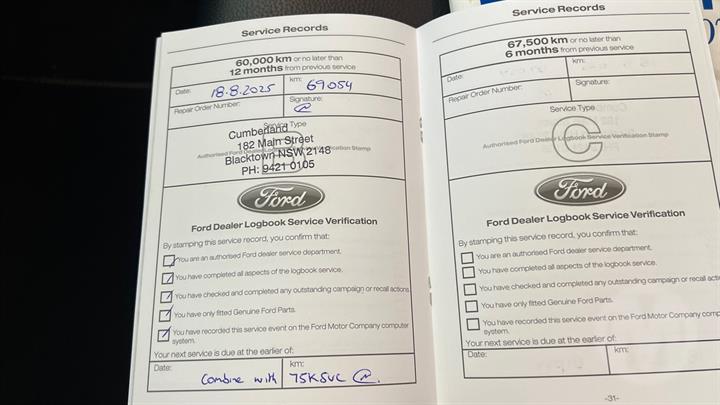 Service Records
60,000 km or no later than
12 months from previous service
Date: 18.8.2025
km: 69054
Repair Order Number:
Signature:
Service Type
B
Authorised Ford Dealer Logbook Service Verification Stamp
Cumberland
182 Main Street
Blacktown NSW 2148
PH: 9421 0105
Ford
Ford Dealer Logbook Service Verification
By stamping this service record, you confirm that:
You are an authorised Ford dealer service department.
You have completed all aspects of the logbook service.
You have checked and completed any outstanding campaign or recall actions.
You have only fitted Genuine Ford Parts.
You have recorded this service event on the Ford Motor Company computer
system.
Your next service is due at the earlier of:
Date:
km:
Combine with 75K SVC
Service Records
67,500 km or no later than
6 months from previous service
Date:
km:
Repair Order Number:
Signature:
Service Type
C
Authorised Ford Dealer Logbook Service Verification Stamp
Ford
Ford Dealer Logbook Service Verification
By stamping this service record, you confirm that:
You are an authorised Ford dealer service department.
You have completed all aspects of the logbook service.
You have checked and completed any outstanding campaign or recall
You have only fitted Genuine Ford Parts.
You have recorded this service event on the Ford Motor Company
system.
Your next service is due at the earlier of:
Date:
km:
-31-